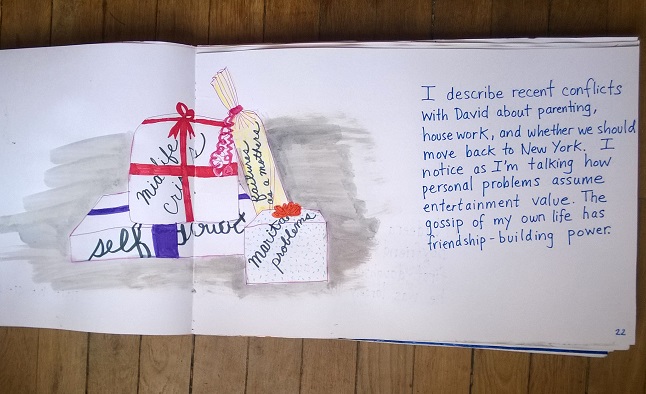 midlife
crisis
failures
as a mother
self
marital
problems
I describe recent conflicts
with David about parenting,
house work, and whether we should
move back to New York. I
notice as I'm talking how
personal problems assume
entertainment value. The
gossip of my own life has
friendship-building power.
22